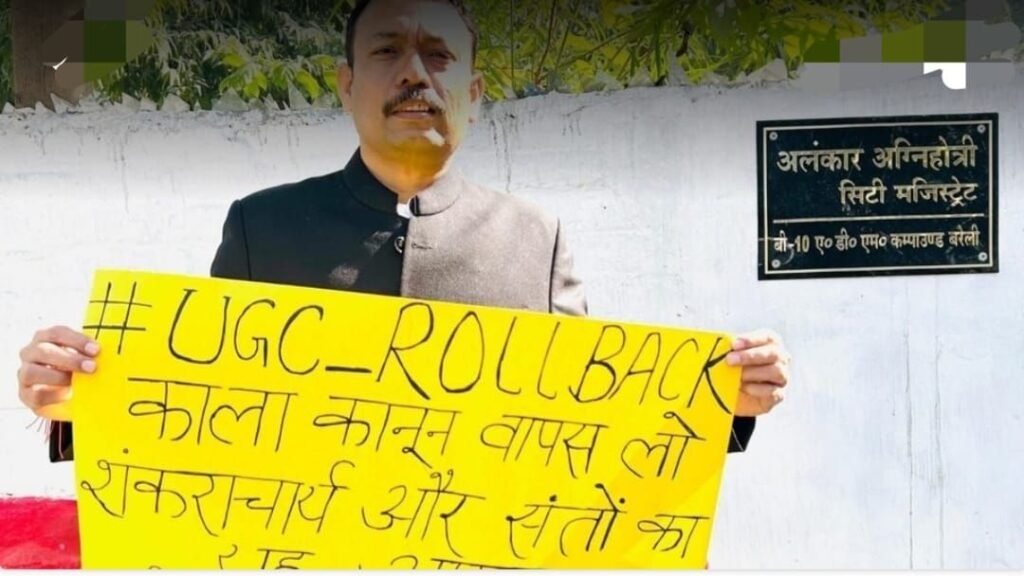 अलंकार अग्निहोत्री
सिटी मजिस्ट्रेट
बी-10 ए० डी० एम० कम्पाउण्ड बरेली
#UGC_ROLLBACK
काला कानून वापस लो
शंकराचार्य और संतों का